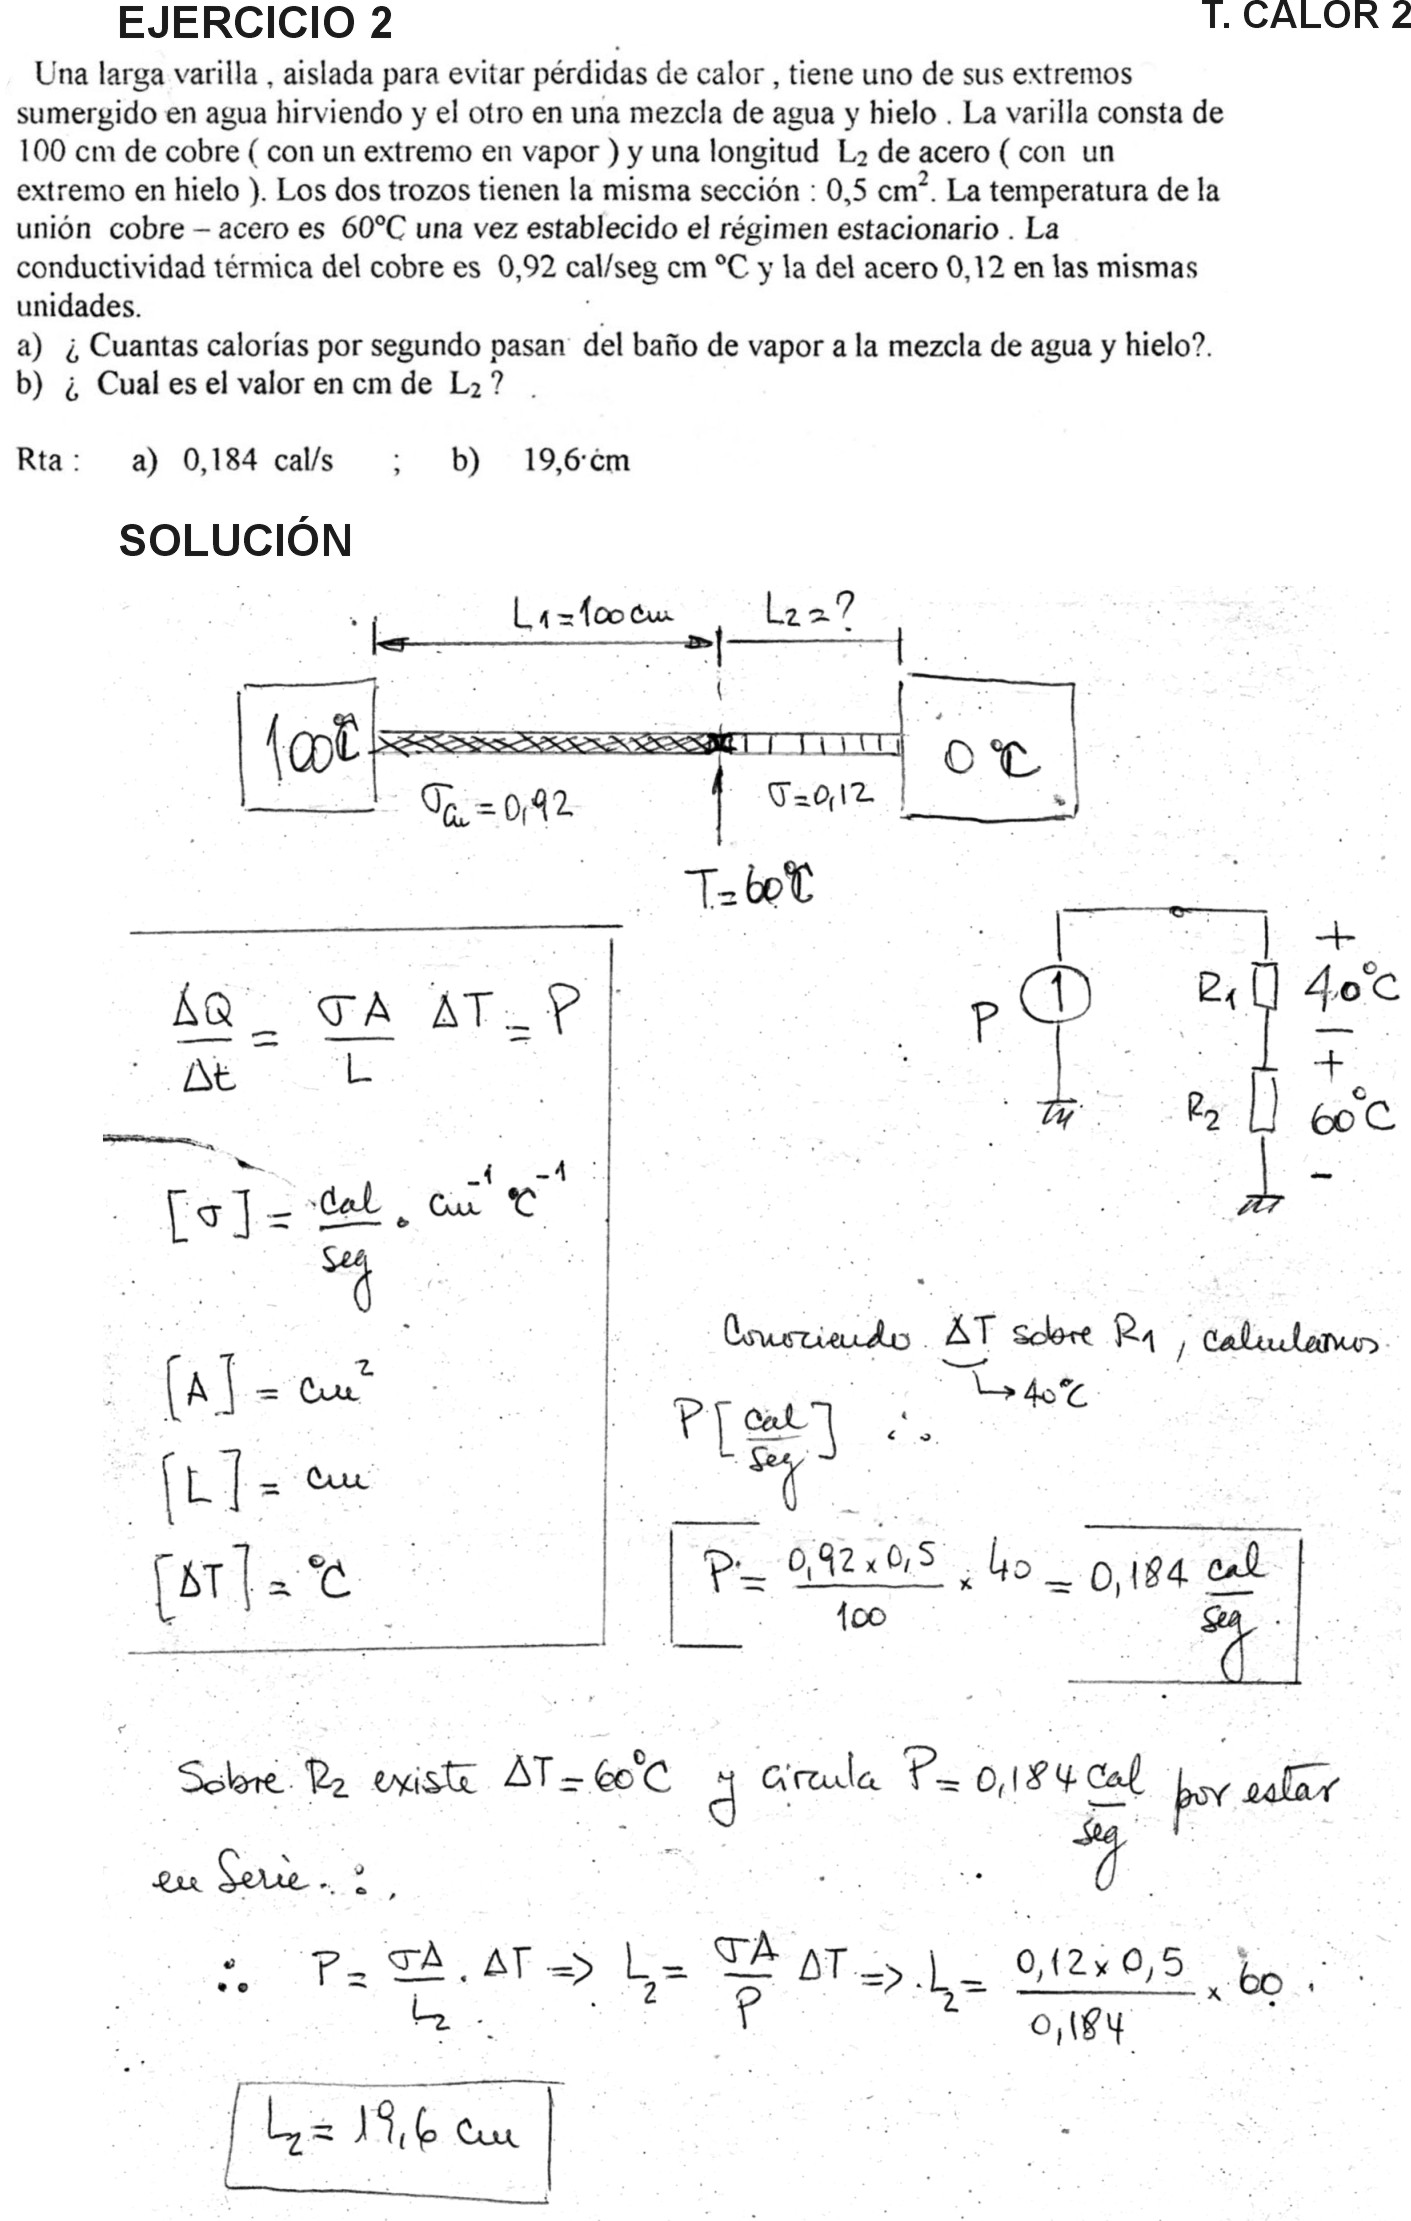 EJERCICIO 2
T. CALOR 2
Una larga varilla , aislada para evitar pérdidas de calor , tiene uno de sus extremos
sumergido en agua hirviendo y el otro en una mezcla de agua y hielo . La varilla consta de
100 cm de cobre ( con un extremo en vapor ) y una longitud L₂ de acero ( con un
extremo en hielo ). Los dos trozos tienen la misma sección : 0,5 cm². La temperatura de la
unión cobre – acero es 60ºC una vez establecido el régimen estacionario . La
conductividad térmica del cobre es 0,92 cal/seg cm ºC y la del acero 0,12 en las mismas
unidades.
a) ¿ Cuantas calorías por segundo pasan del baño de vapor a la mezcla de agua y hielo?.
b) ¿ Cual es el valor en cm de L₂ ?
Rta : a) 0,184 cal/s ; b) 19,6 cm
SOLUCIÓN
L1=100cm L2=?
100ºC 0ºC
σCu=0,92 σ=0,12
T=60ºC
ΔQ/Δt = σA/L ΔT = P
P R1 + 40ºC −
R2 + 60ºC -
[σ] = cal/seg . cm⁻¹ ºC⁻¹
[A] = cm²
[L] = cm
[ΔT] = ºC
Conociendo ΔT sobre R1, calculamos
↳40ºC
P[cal/seg] ∴
P = 0,92 x 0,5/100 x 40 = 0,184 cal/seg
Sobre R2 existe ΔT=60ºC y circula P=0,184 cal/seg por estar
en Serie ∴
∴ P = σA/L2 . ΔT => L2 = σA/P ΔT => L2 = 0,12 x 0,5/0,184 x 60
L2 = 19,6 cm